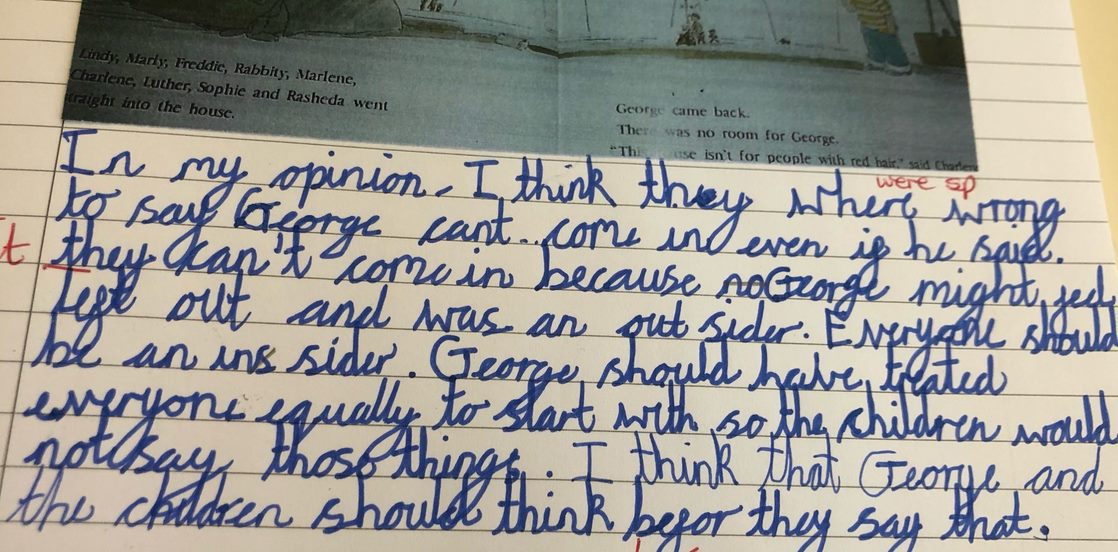 Lindy, Marly, Freddie, Rabbity, Marlene,
Charlene, Luther, Sophie and Rasheda went
traight into the house.
George came back.
There was no room for George.
"Thi use isn't for people with red hair," said Charlen
In my opinion, I think they where wrong
were sp
to say George cant.. come in even if he said.
t they can't come in because George might feel
left out and was an out sider. Everyone should
be an ins sider. George should have treated
everyone equally to start with so the children would
not say those things. I think that George and
the children should think befor they say that.